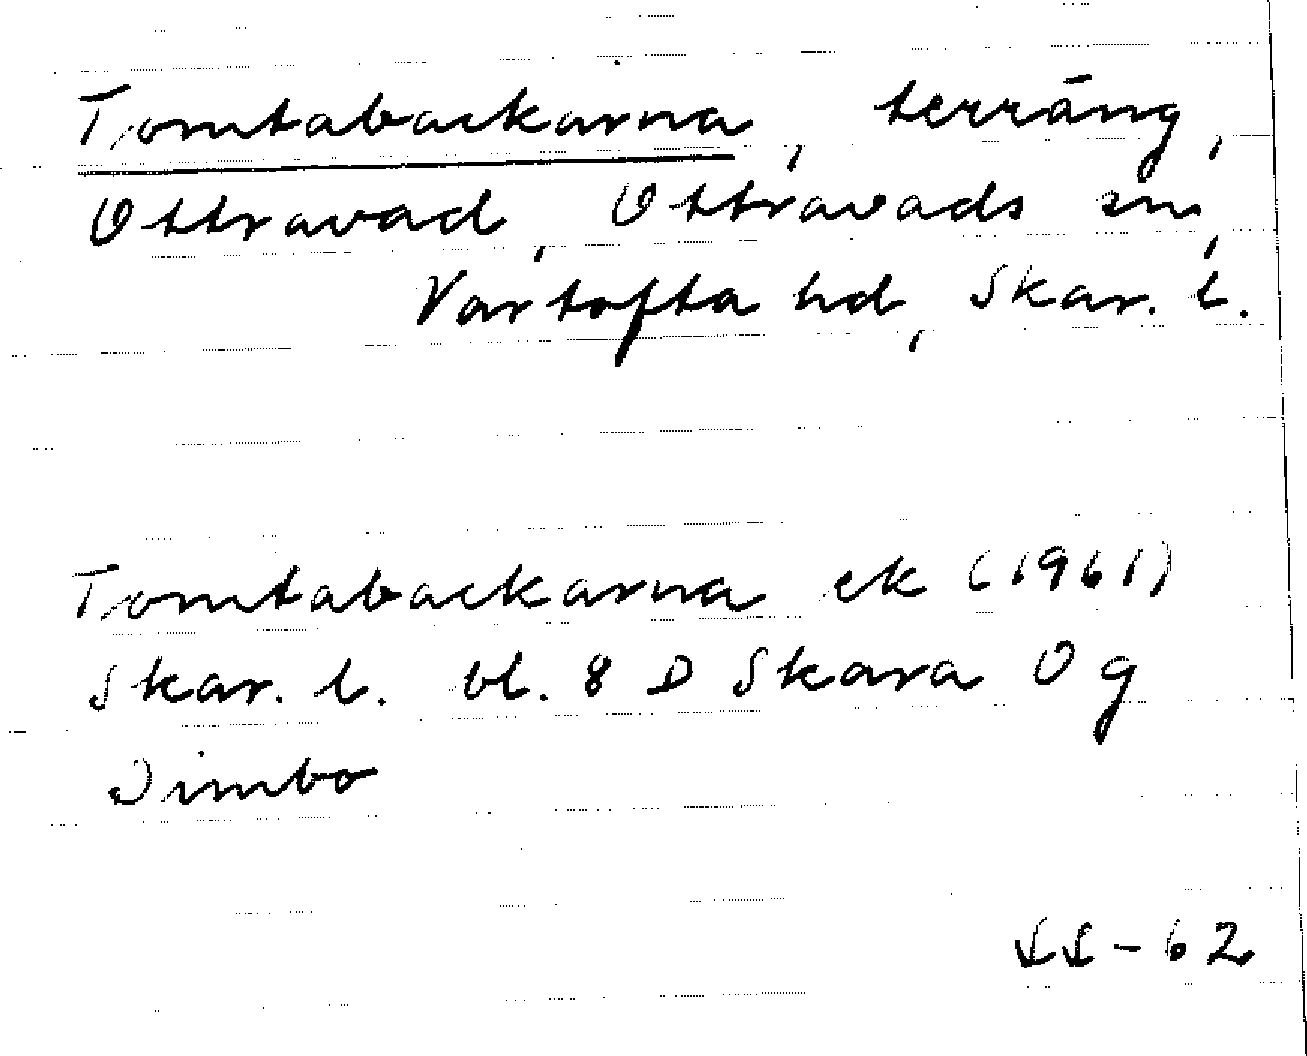 Tomtabackarna, terräng,
Ottravad, Ottravads sn,
Vartofta hd, Skar. l.
Tomtabackarna ek (1961)
Skar. l. bl. 8 D Skara 0 g
Dimbo
-62